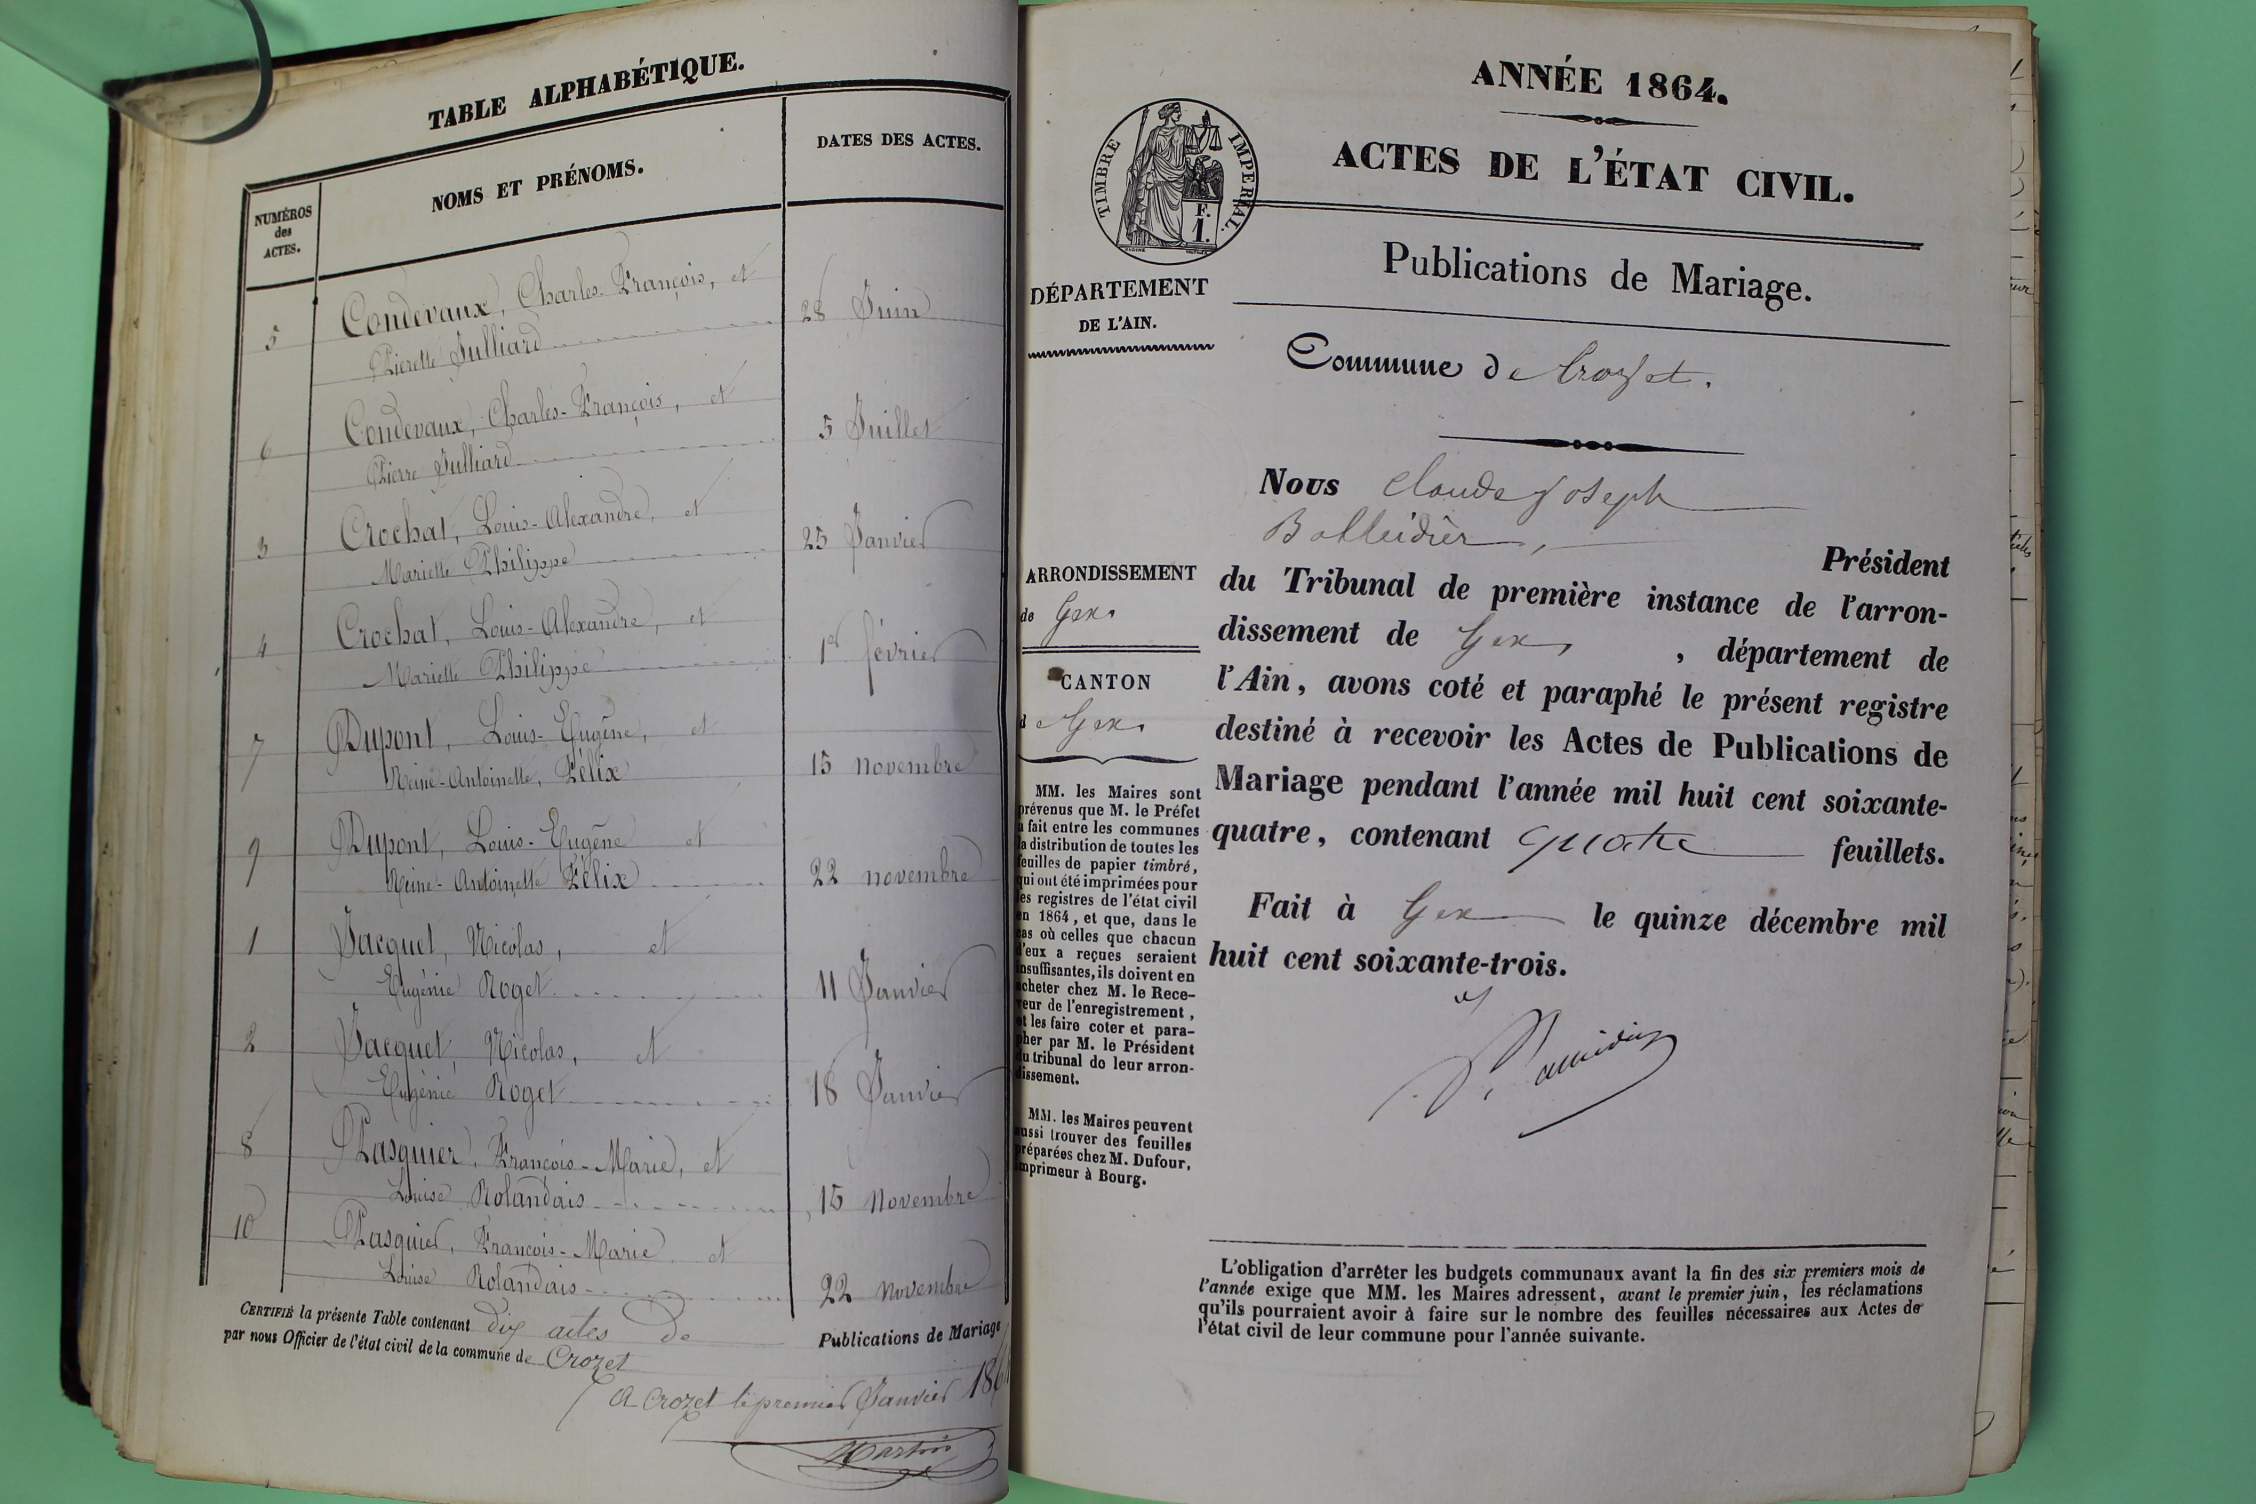 TABLE ALPHABÉTIQUE.
NUMÉROS des ACTES.
NOMS ET PRÉNOMS.
DATES DES ACTES.
5 Condevaux, Charles-François, et
Pierette Julliard 28 Juin
6 Condevaux, Charles-François, et
Pierre Julliard 5 Juillet
3 Crochat, Louis-Alexandre, et
Mariette Philippe 25 Janvier
4 Crochat, Louis-Alexandre, et
Mariette Philippe 1er février
7 Dupont, Louis-Eugène, et
Reine-Antoinette, Félix 15 novembre
9 Dupont, Louis-Eugène et
Reine-Antoinette Félix 22 novembre
1 Jacquet, Nicolas, et
Eugénie Roget 11 Janvier
2 Jacquet, Nicolas, et
Eugénie Roget 18 Janvier
8 Pasquier, François-Marie, et
Louise Rolandais 15 Novembre
10 Pasquier, François-Marie et
Louise Rolandais 22 novembre
CERTIFIÉ la présente Table contenant dix actes de Publications de Mariage
par nous Officier de l'état civil de la commune de Crozet
A Crozet le premier Janvier
Martin
ANNÉE 1864.
ACTES DE L'ÉTAT CIVIL.
TIMBRE IMPERIAL.
F.
1.
Publications de Mariage.
DÉPARTEMENT
DE L'AIN.
Commune de Crozet.
Nous Claude Joseph
Président
ARRONDISSEMENT
de Gex.
CANTON
de Gex.
du Tribunal de première instance de l'arron-
dissement de Gex, , département de
l'Ain, avons coté et paraphé le présent registre
destiné à recevoir les Actes de Publications de
Mariage pendant l'année mil huit cent soixante-
quatre, contenant quatre feuillets.
Fait à Gex le quinze décembre mil
huit cent soixante-trois.
MM. les Maires sont
prévenus que M. le Préfet
a fait entre les communes
la distribution de toutes les
feuilles de papier timbré,
qui ont été imprimées pour
les registres de l'état civil
en 1864, et que, dans le
cas où celles que chacun
d'eux a reçues seraient
insuffisantes, ils doivent en
acheter chez M. le Rece-
veur de l'enregistrement,
et les faire coter et para-
pher par M. le Président
du tribunal de leur arron-
dissement.
MM. les Maires peuvent
aussi trouver des feuilles
préparées chez M. Dufour,
imprimeur à Bourg.
L'obligation d'arrêter les budgets communaux avant la fin des six premiers mois de
l'année exige que MM. les Maires adressent, avant le premier juin, les réclamations
qu'ils pourraient avoir à faire sur le nombre des feuilles nécessaires aux Actes de
l'état civil de leur commune pour l'année suivante.